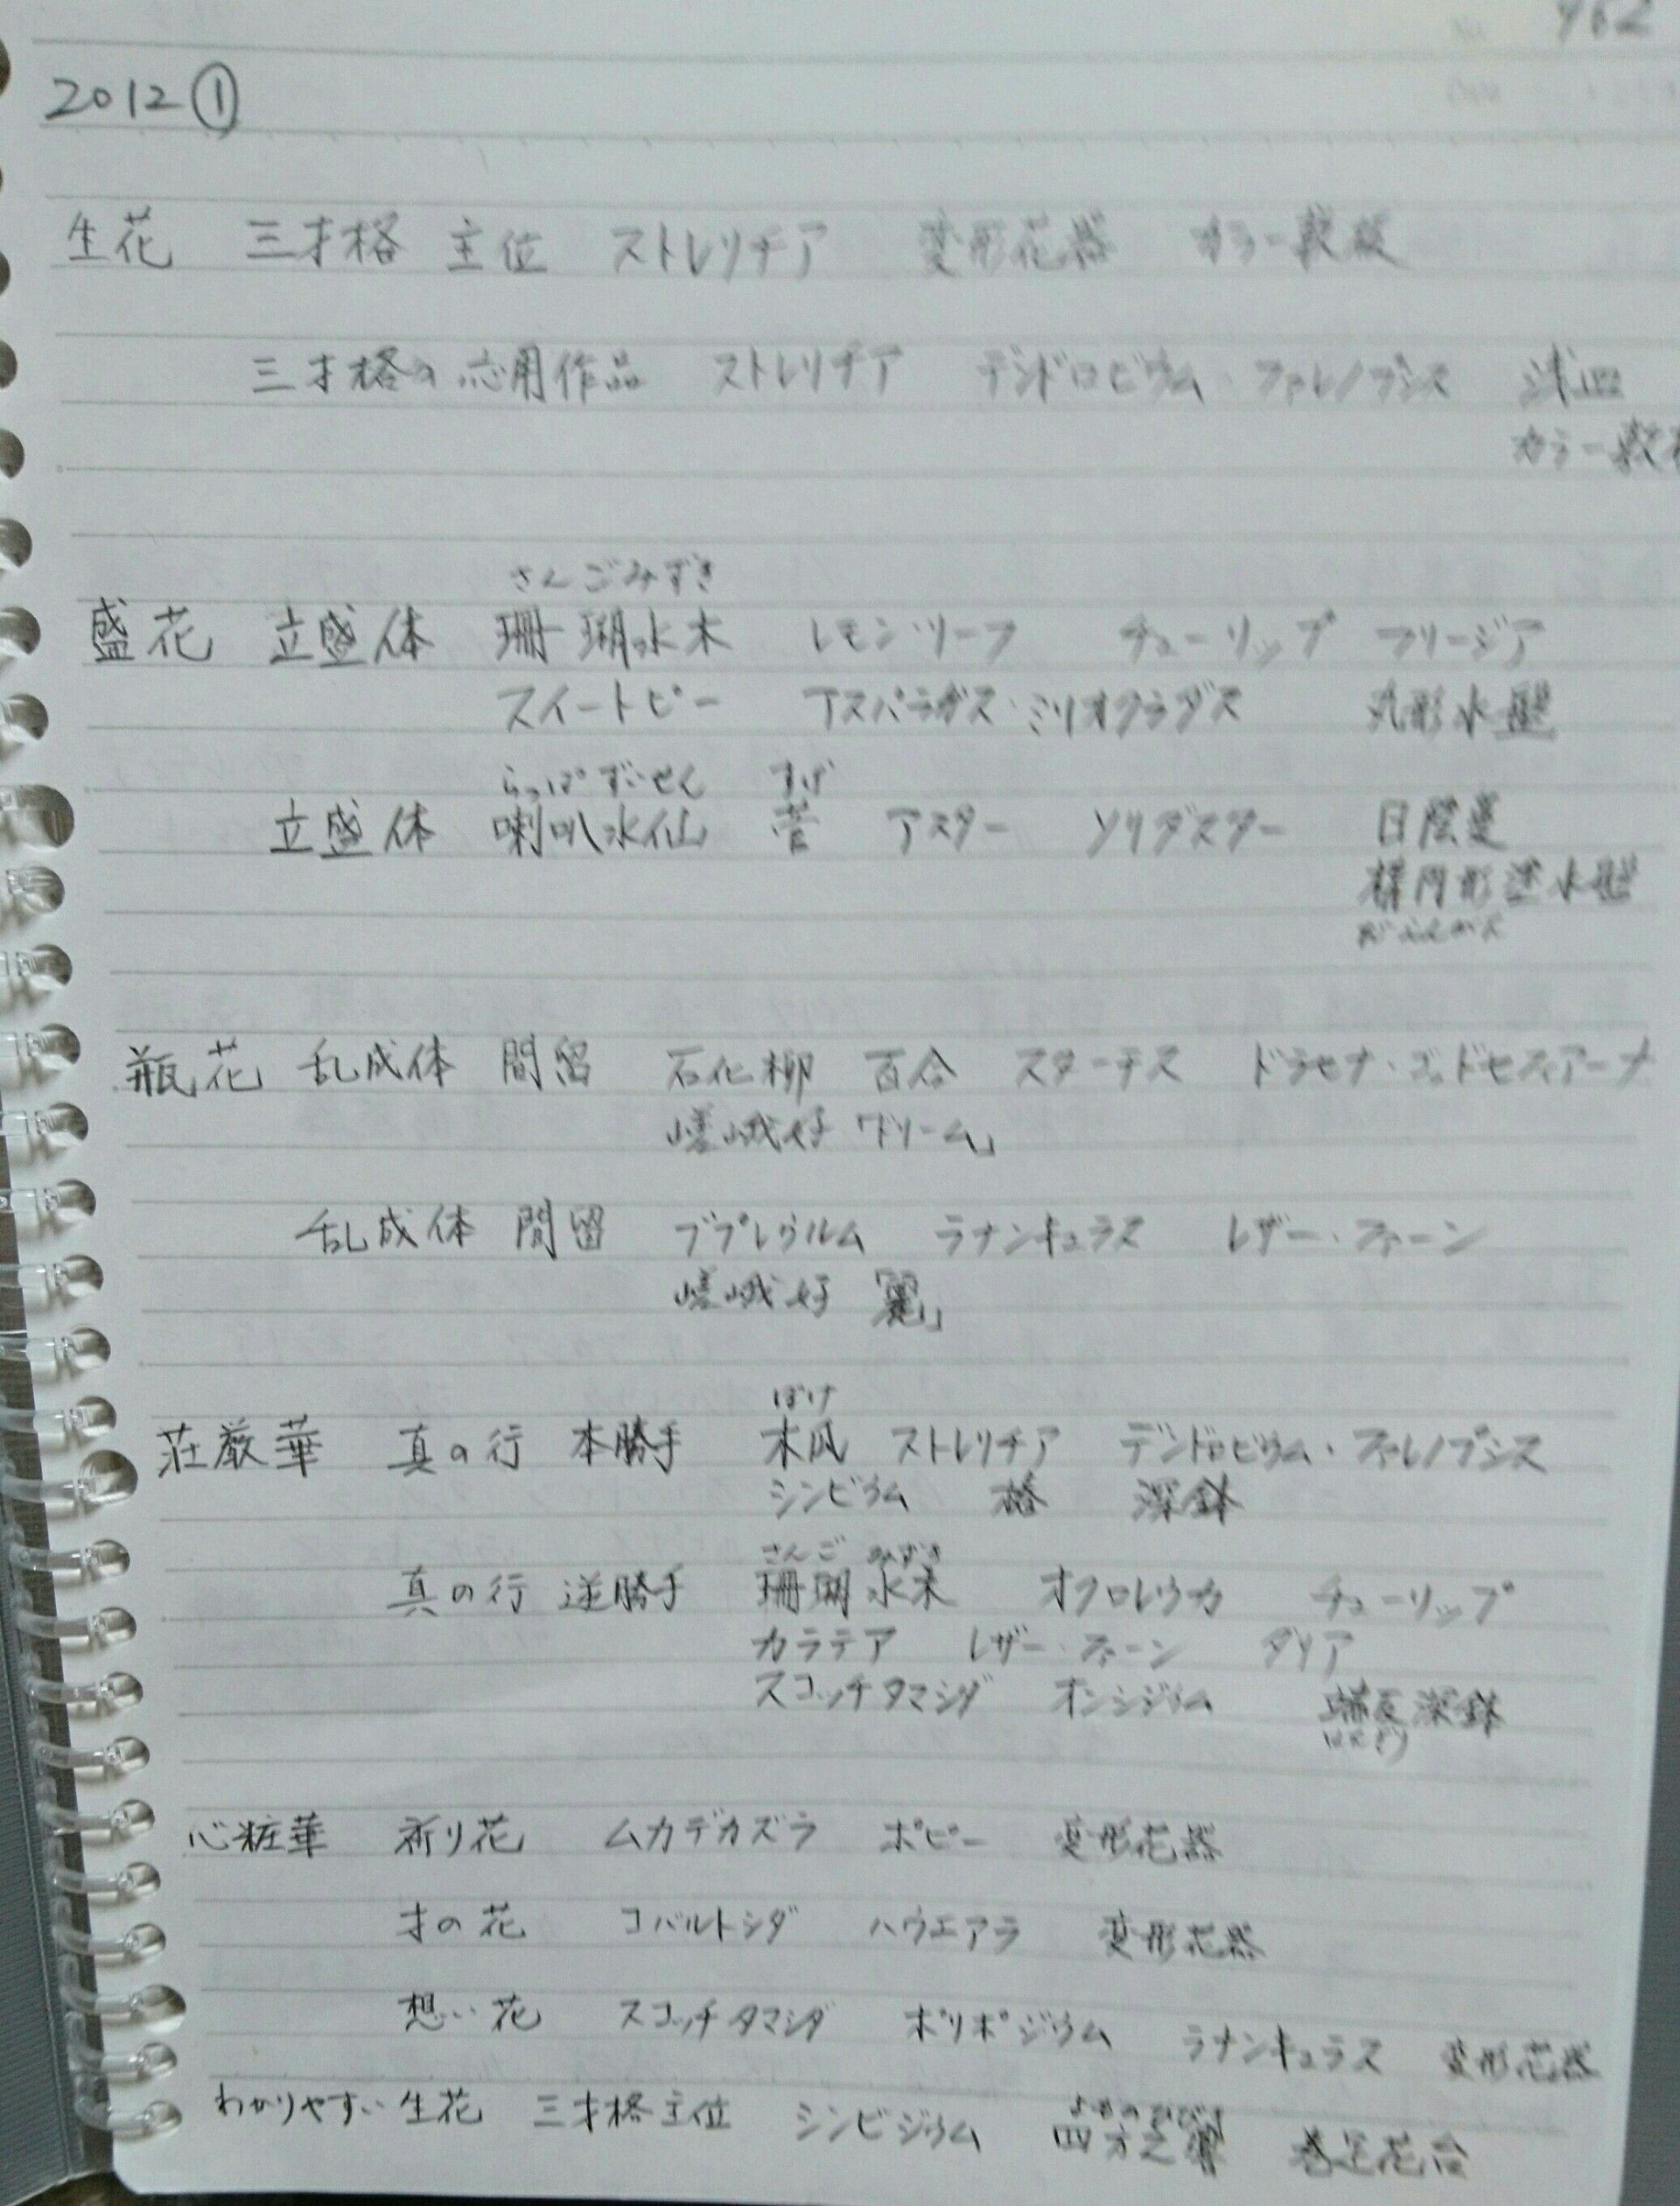 2012①
生花 三才格 主位 ストレリチア 変形花器 カラー軟板
三才格の応用作品 ストレリチア デンドロビウム・ファレノプシス 浅皿
カラー軟
さんごみずき
盛花 立盛体 珊瑚水木 レモン・リーフ チューリップ フリージア
スイートピー アスパラガス・ミリオクラダス 丸形水盤
らっぱずいせん すげ
立盛体 喇叭水仙 菅 アスター ソリダスター 日陰蔓
楕円形塗水盤
瓶花 乱成体 間留 石化柳 百合 スターチス ドラセナ・ゴッドセフィアーナ
嵯峨好「ドリーム」
乱成体 間留 ブプレウルム ラナンキュラス レザー・ファーン
嵯峨好「麗」
ぼけ
荘厳華 真の行 本勝手 木瓜 ストレリチア デンドロビウム・ファレノプシス
シンビウム 椿 深鉢
さんごみずき
真の行 逆勝手 珊瑚水木 オクロレウカ チューリップ
カラテア レザー・ファーン ダリア
スコッチタマシダ オンシジウム 端反深鉢
はたぞり
心粧華 祈り花 ムカデカズラ ポピー 変形花器
才の花 コバルトシダ ハウエアラ 変形花器
想い花 スコッチタマシダ ポリポジウム ラナンキュラス 変形花器
よものひびき
わかりやすい生花 三才格主位 シンビジウム 四方之響 巻足花台